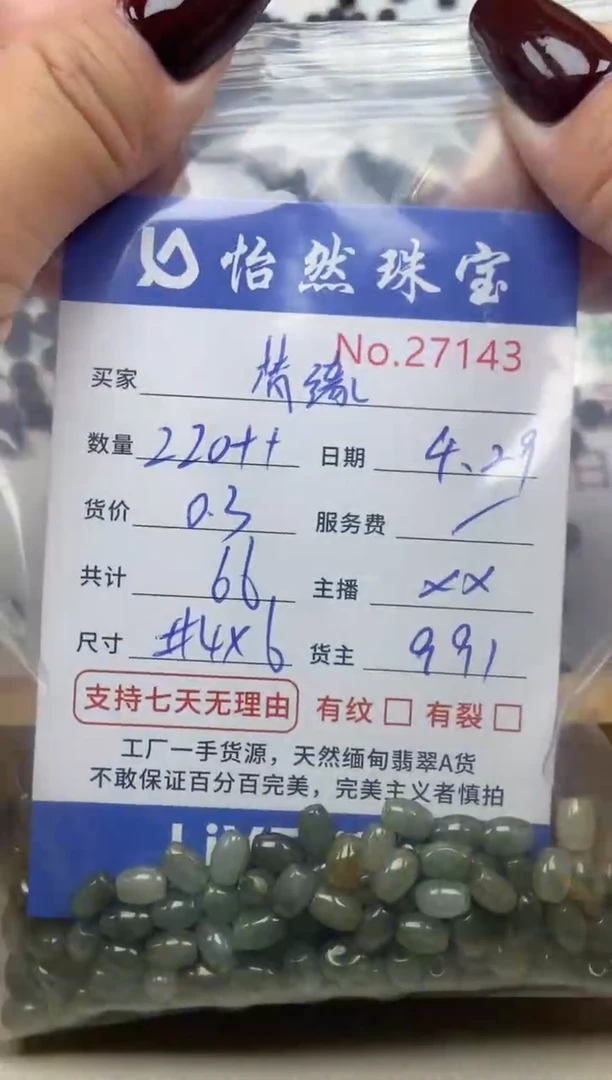 怡然珠宝
No.27143
买家 情缘
数量 220++ 日期 4.29
货价 0.3 服务费 /
共计 66 主播 xx
尺寸 #4×6 货主 991
支持七天无理由 有纹 □ 有裂 □
工厂一手货源，天然缅甸翡翠A货
不敢保证百分百完美，完美主义者慎拍